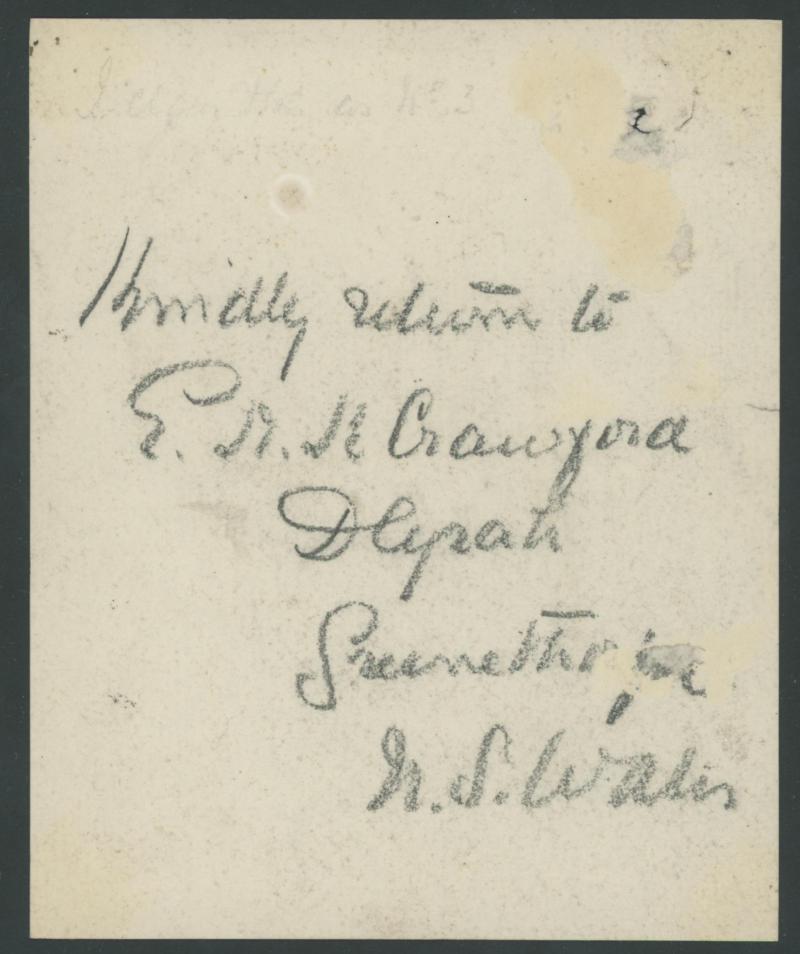 as No 3
Kindly return to
E. R. H Crawford
Greenethorpe
N. S. Wales